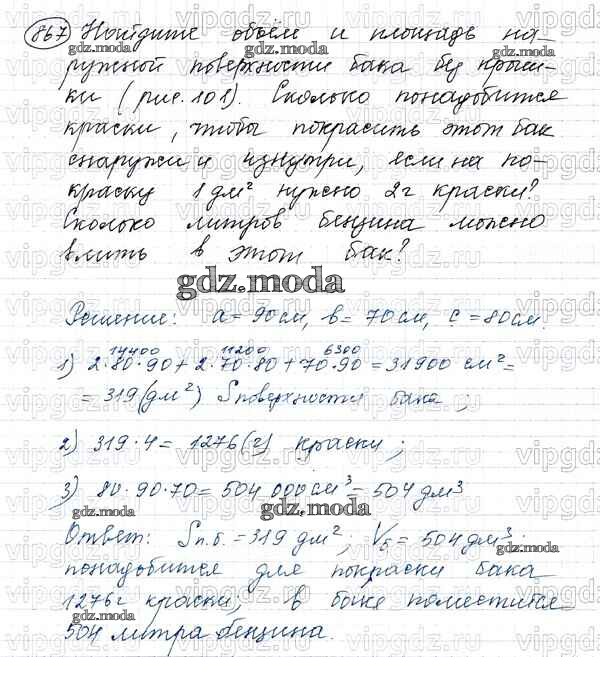 867 Найдите объём и площадь на-
ружной поверхности бака без крыш-
ки (рис. 101). Сколько понадобится
краски, чтобы покрасить этот бак
снаружи и изнутри, если на по-
краску 1 дм² нужно 2 г краски?
Сколько литров бензина можно
влить в этот бак?
gdz.moda
Решение: a = 90 см, b = 70 см, c = 80 см.
14400 11200 6300
1) 2·80·90 + 2·70·80 + 70·90 = 31900 см² =
= 319 (дм²) Sповерхности бака;
2) 319·4 = 1276 (г) краски;
3) 80·90·70 = 504 000 см³ = 504 дм³
Ответ: Sп.б. = 319 дм²; Vб = 504 дм³;
понадобится для покраски бака
1276г краски; в баке поместится
504 литра бензина.